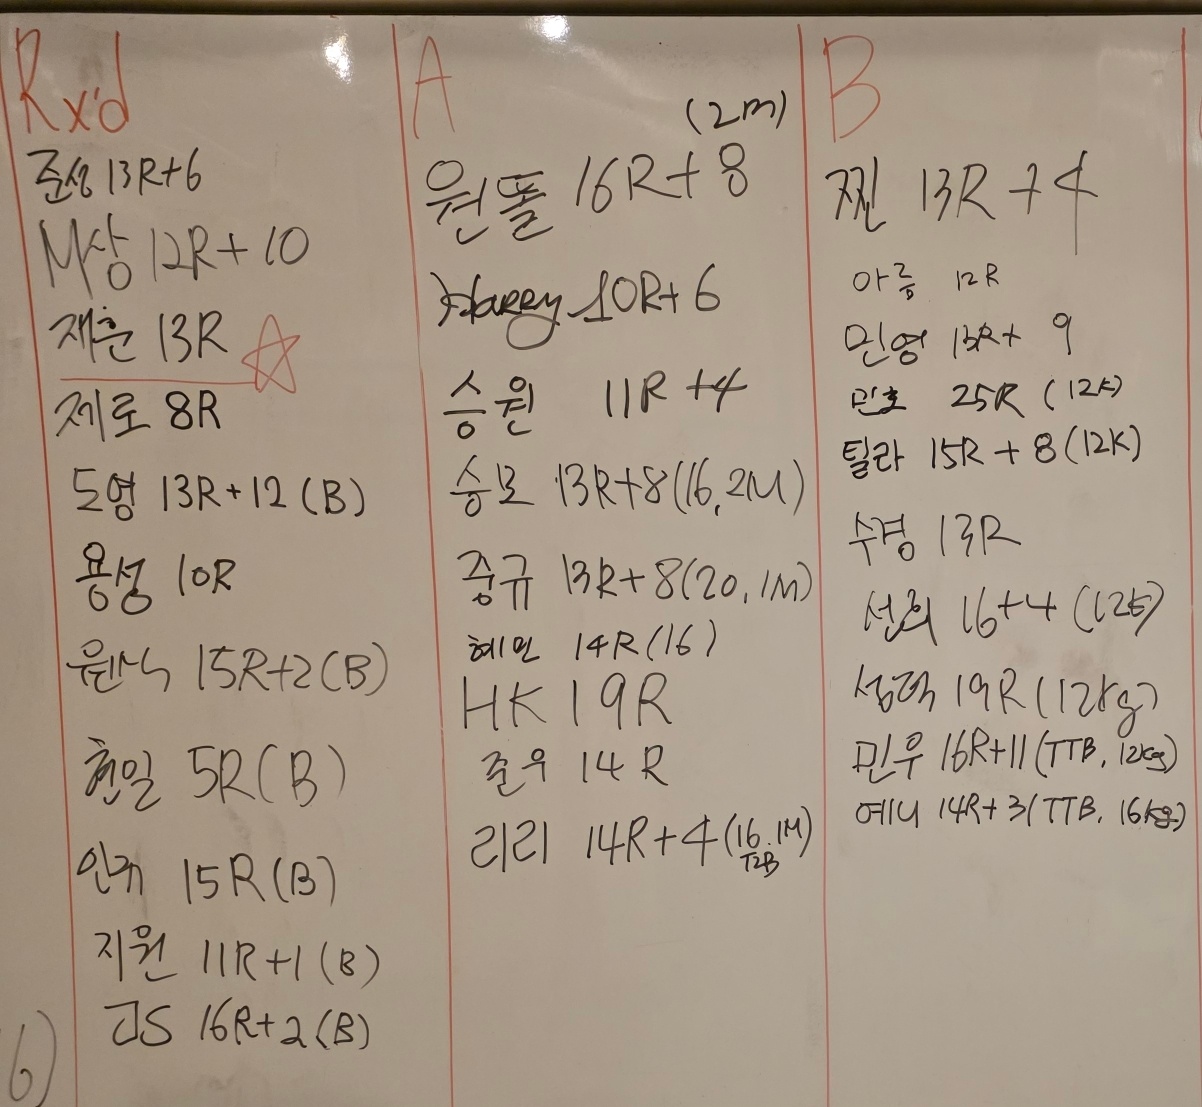 Rx'd
준성 13R+6
M상 12R+10
재훈 13R
제로 8R
도영 13R+12 (B)
용성 10R
원식 15R+2(B)
현일 5R(B)
15R(B)
지원 11R+1 (B)
16R+2(B)
6)
A
(2m)
원똘 16R+8
Harry 10R+6
승원 11R+4
승모 13R+8(16, 2M)
중규 13R+8(20, 1M)
혜민 14R(16)
HK 19R
준우 14R
리리 14R+4(16. 1M)
T2B
B
찐 13R+4
아름 12R
민영 13R+ 9
민호 25R (12K)
틸라 15R+8(12K)
수경 13R
선희 16+4 (12K)
19R(12kg)
민우 16R+11(TTB, 12kg)
예니 14R+3(TTB, 16kg)